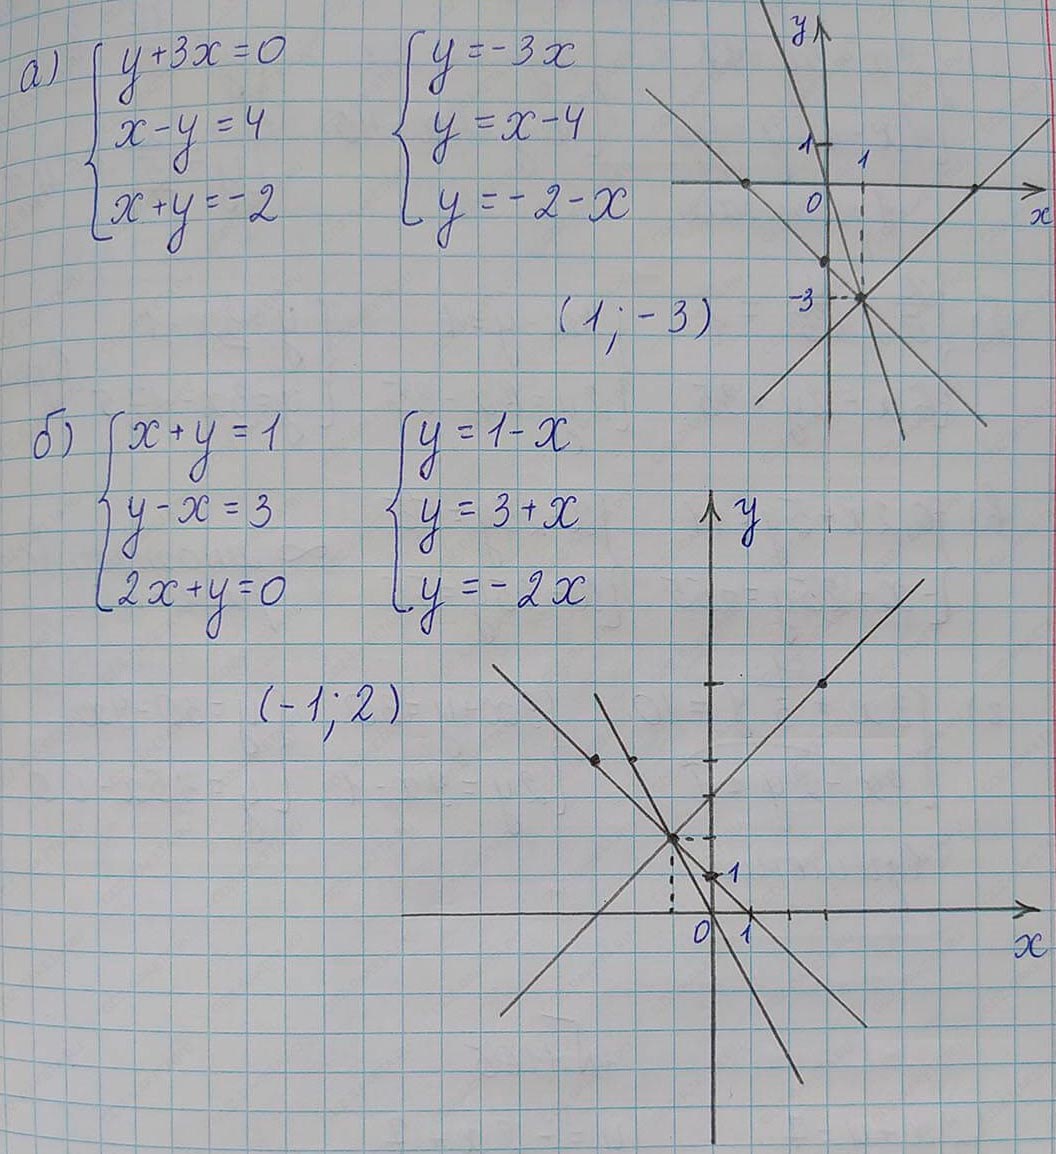 а) { y + 3x = 0
x - y = 4
x + y = -2
{ y = -3x
y = x - 4
y = -2 - x
(1; -3)
y
1
1
0
x
-3
б) { x + y = 1
y - x = 3
2x + y = 0
{ y = 1 - x
y = 3 + x
y = -2x
(-1; 2)
y
1
0
1
x